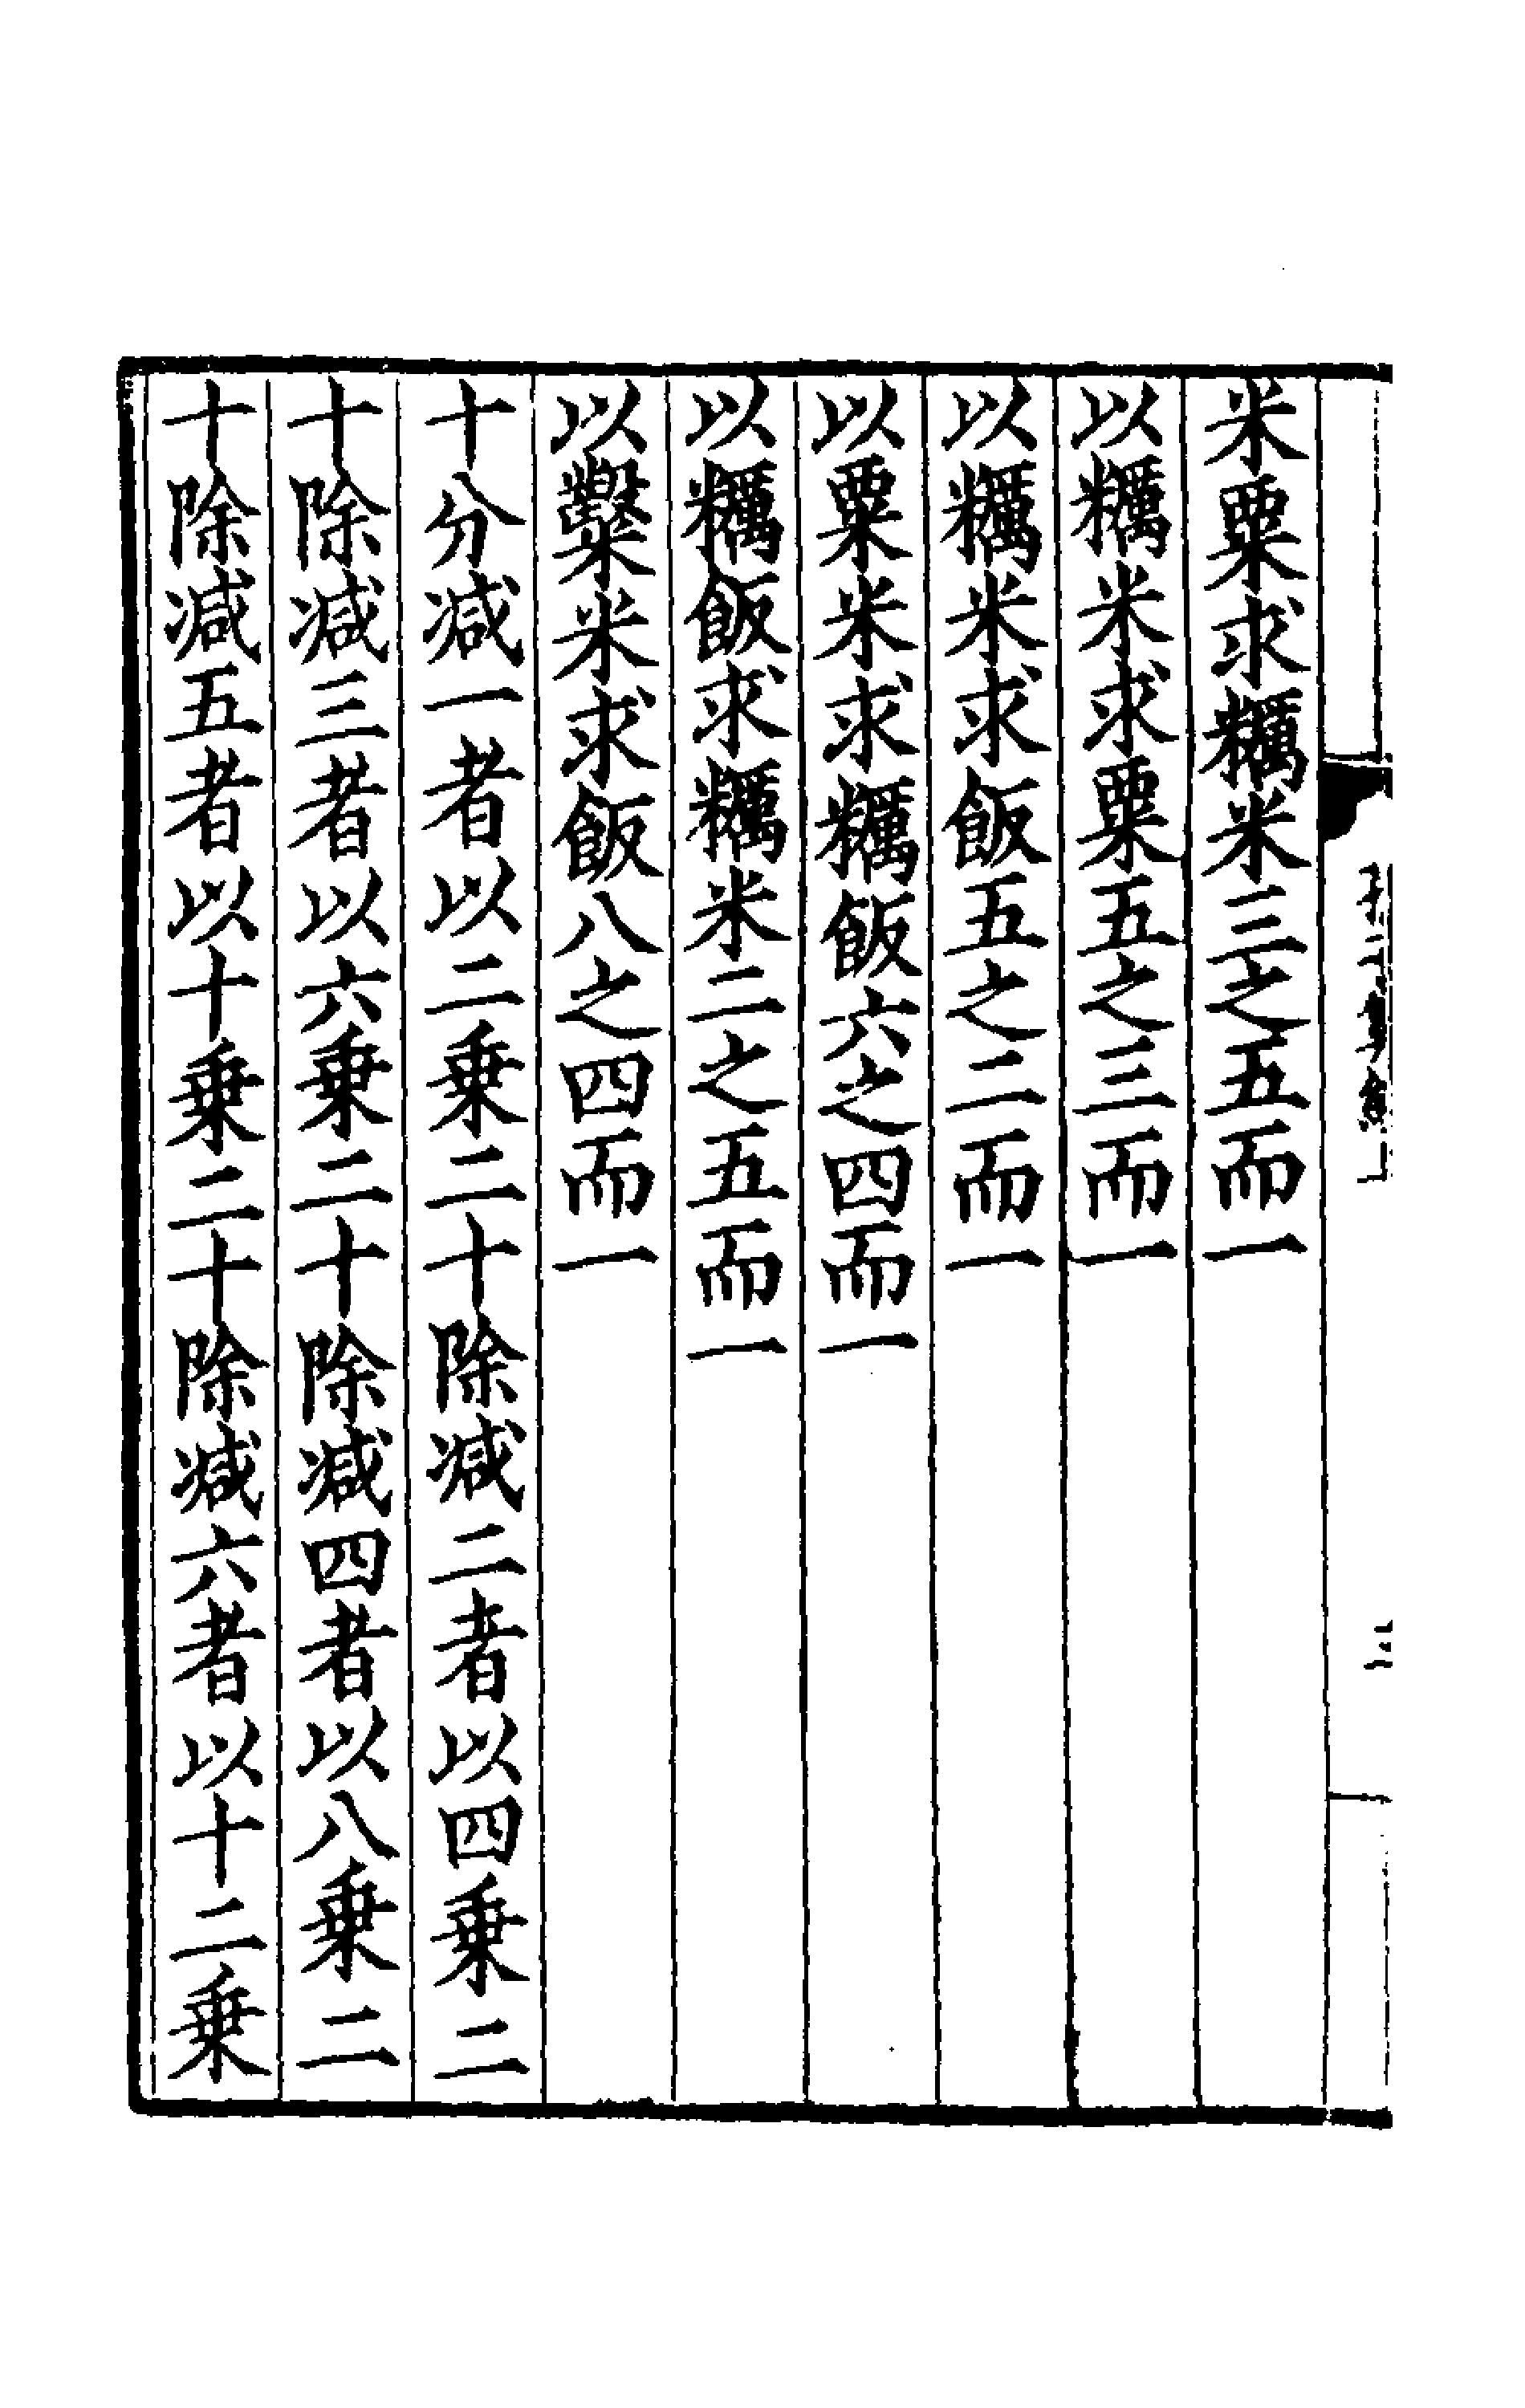 米粟求糲米三之五而一
以糲米求粟五之三而一
以糲米求飯五之二而一
以粟米求糲飯六之四而一
以糲飯求糲米二之五而一
以糳米求飯八之四而一
十分减一者以二乗二十除减二者以四乗二
十除减三者以六乗二十除减四者以八乗二
十除减五者以十乗二十除减六者以十二乗